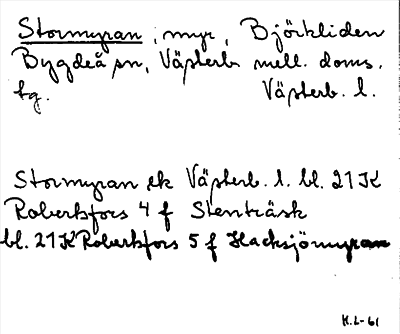 Stormyran, myr, Björkliden
Bygdeå sn, Västerb. mell. doms.
tg. Västerb. l.
Stormyran ek Västerb. l. bl. 21 K
Robertsfors 4 f Stenträsk
bl. 21 K Robertsfors 5 f Hacksjömyran
H.L-61